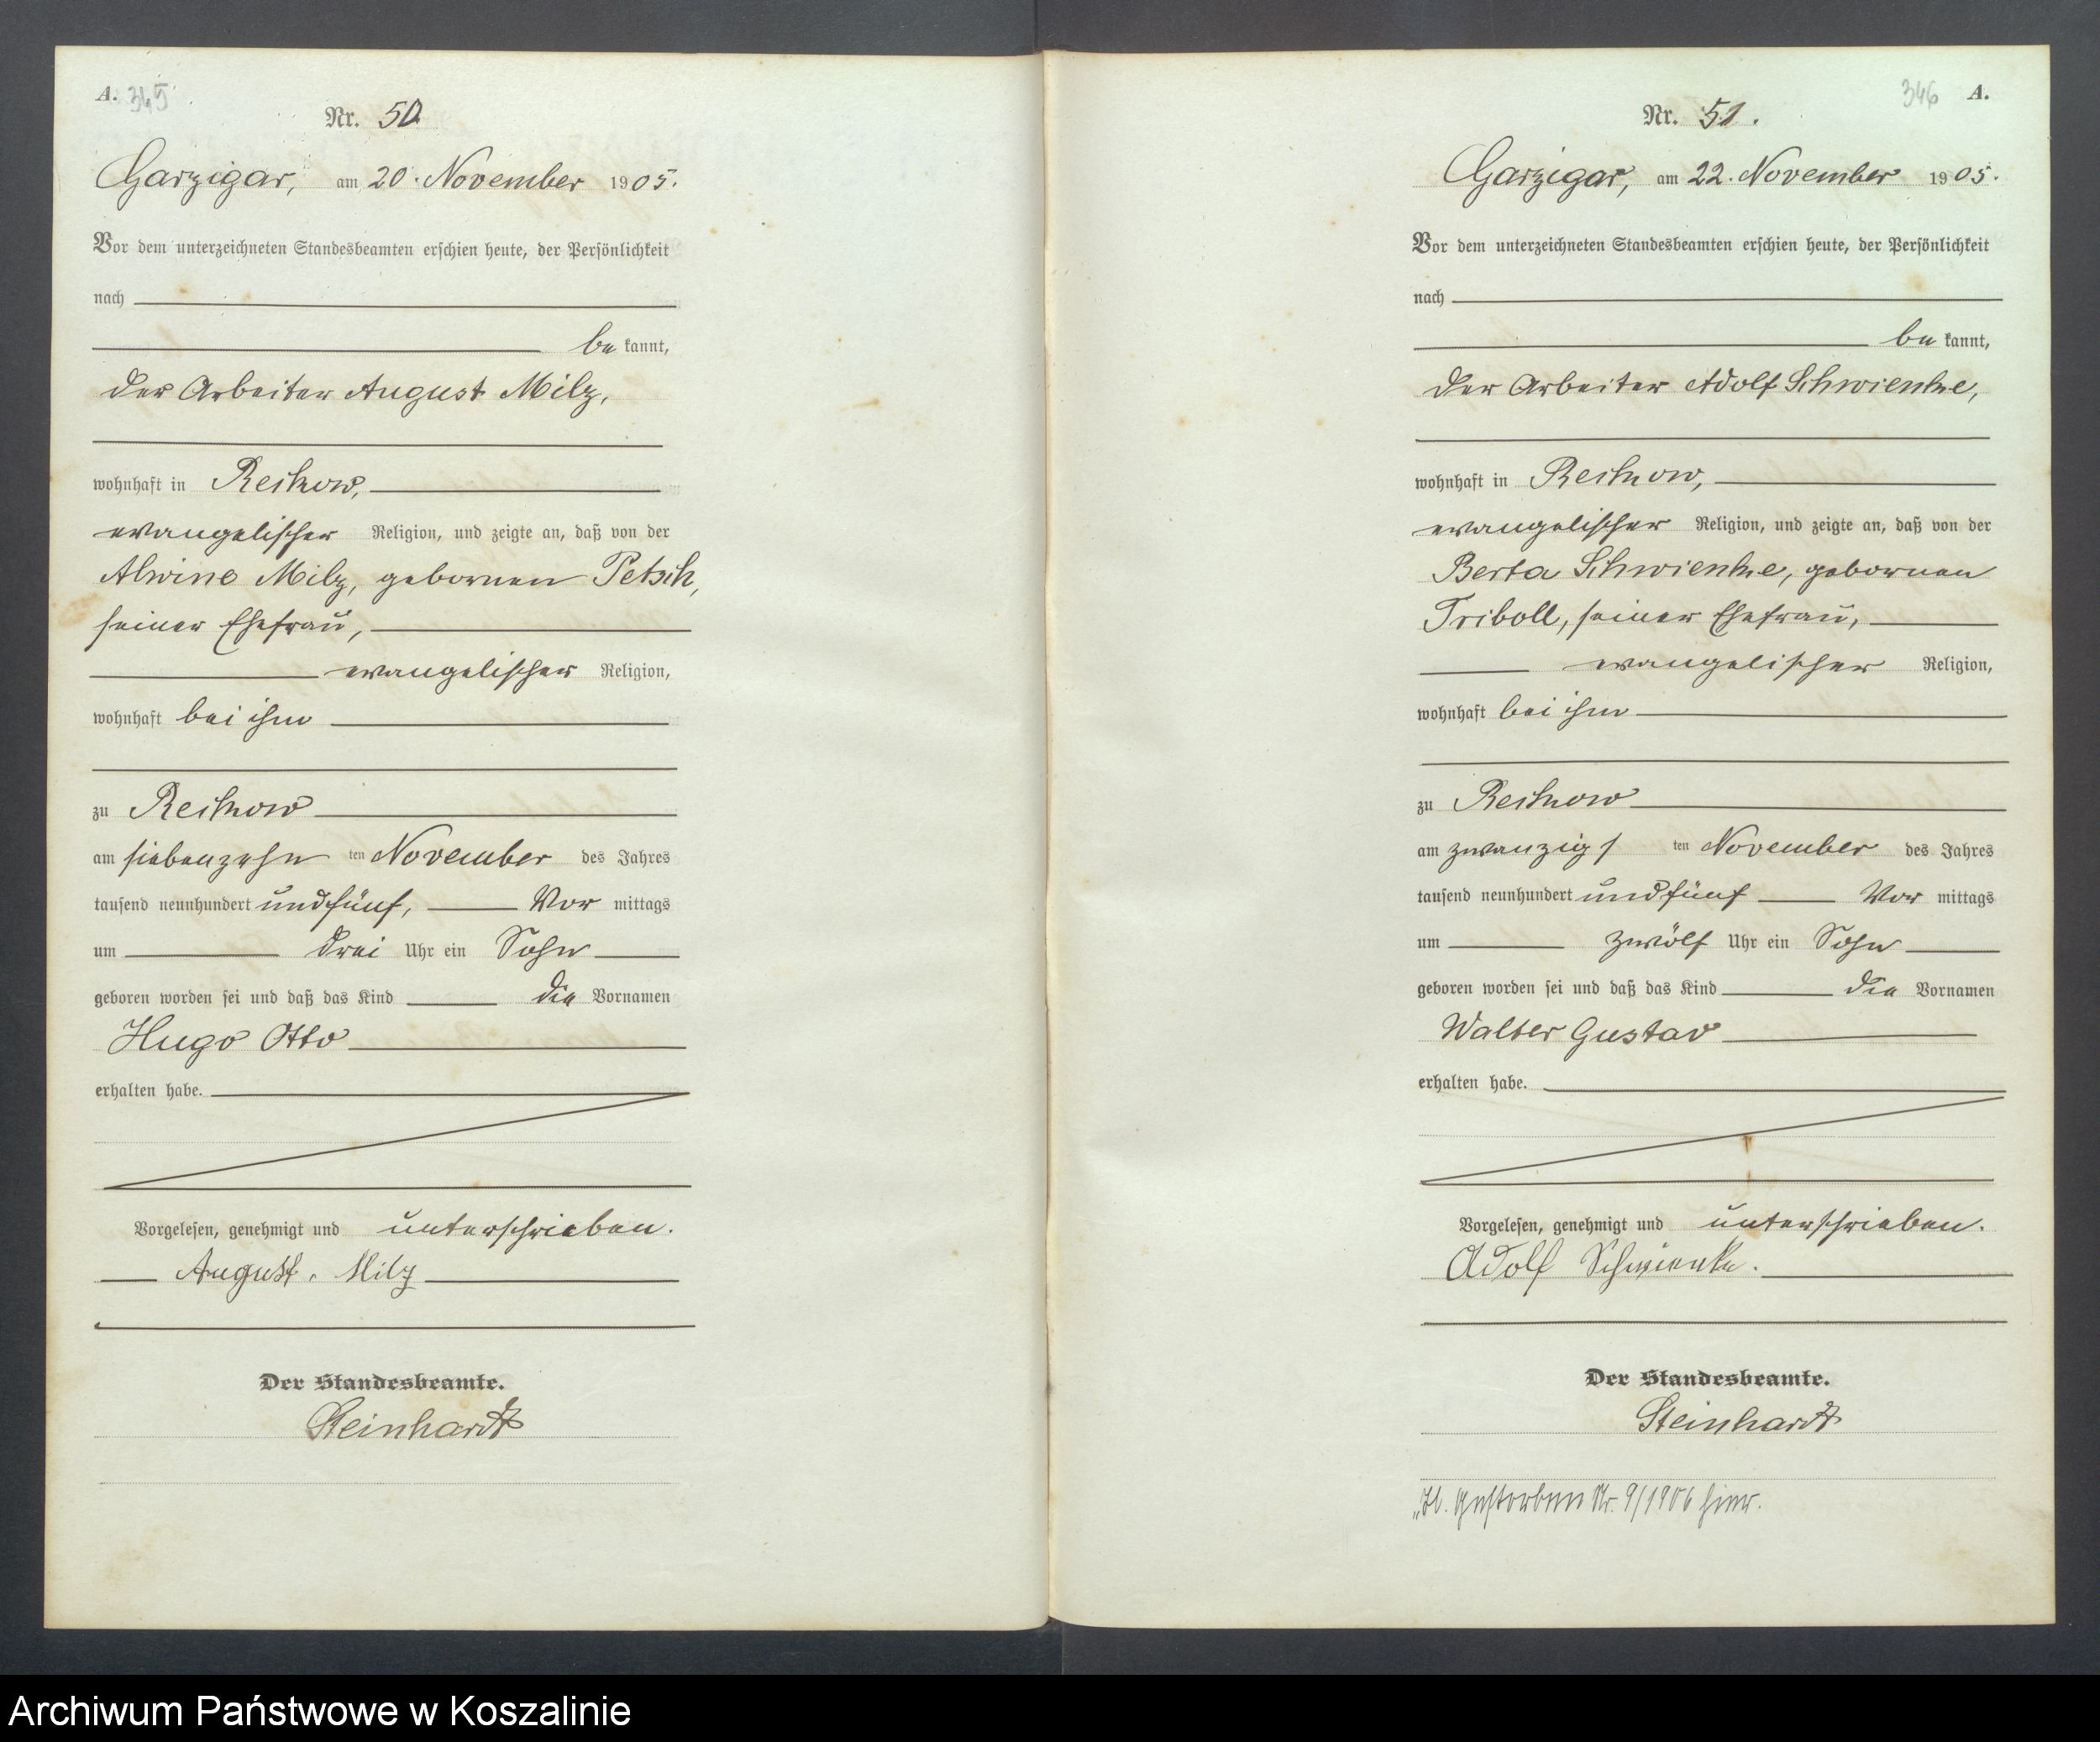 A. 345
Nr. 50
Garzigar, am 20. November 1905.
Vor dem unterzeichneten Standesbeamten erschien heute, der Persönlichkeit
nach
be kannt,
der Arbeiter August Milz,
wohnhaft in Reckow,
evangelischer Religion, und zeigte an, daß von der
Alwine Milz, gebornen Petsch,
seiner Ehefrau,
evangelischer Religion,
wohnhaft bei ihm
zu Reckow
am siebenzehn ten November des Jahres
tausend neunhundert und fünf, Vor mittags
um drei Uhr ein Sohn
geboren worden sei und daß das Kind die Vornamen
Hugo Otto
erhalten habe.
Vorgelesen, genehmigt und unterschrieben.
August Milz
Der Standesbeamte.
Steinhardt
346 A.
Nr. 51.
Garzigar, am 22. November 1905.
Vor dem unterzeichneten Standesbeamten erschien heute, der Persönlichkeit
nach
be kannt,
der Arbeiter Adolf Schwienke,
wohnhaft in Reckow,
evangelischer Religion, und zeigte an, daß von der
Berta Schwienke, gebornen
Triboll, seiner Ehefrau,
evangelischer Religion,
wohnhaft bei ihm
zu Reckow
am zwanzigs ten November des Jahres
tausend neunhundert und fünf Vor mittags
um zwölf Uhr ein Sohn
geboren worden sei und daß das Kind die Vornamen
Walter Gustav
erhalten habe.
Vorgelesen, genehmigt und unterschrieben.
Adolf Schwienke.
Der Standesbeamte.
Steinhardt
gestorben Nr. 9/1906 hier.
Archiwum Państwowe w Koszalinie